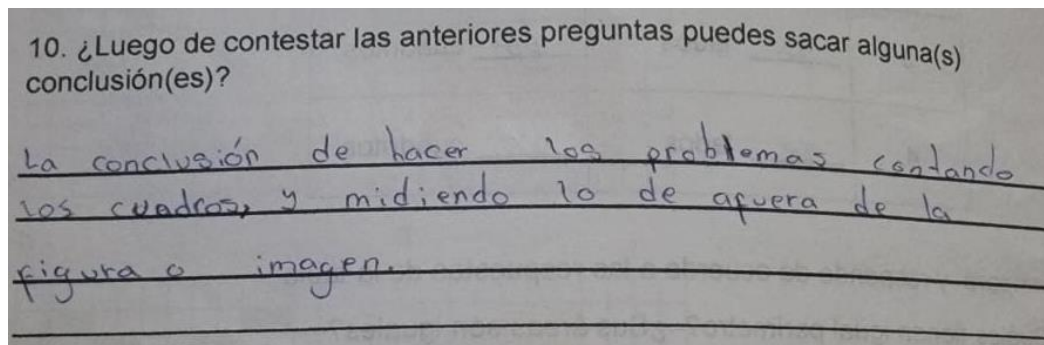 10. ¿Luego de contestar las anteriores preguntas puedes sacar alguna(s)
conclusión(es)?
La conclusión de hacer los problemas contando
los cuadros, y midiendo lo de afuera de la
figura o imagen.